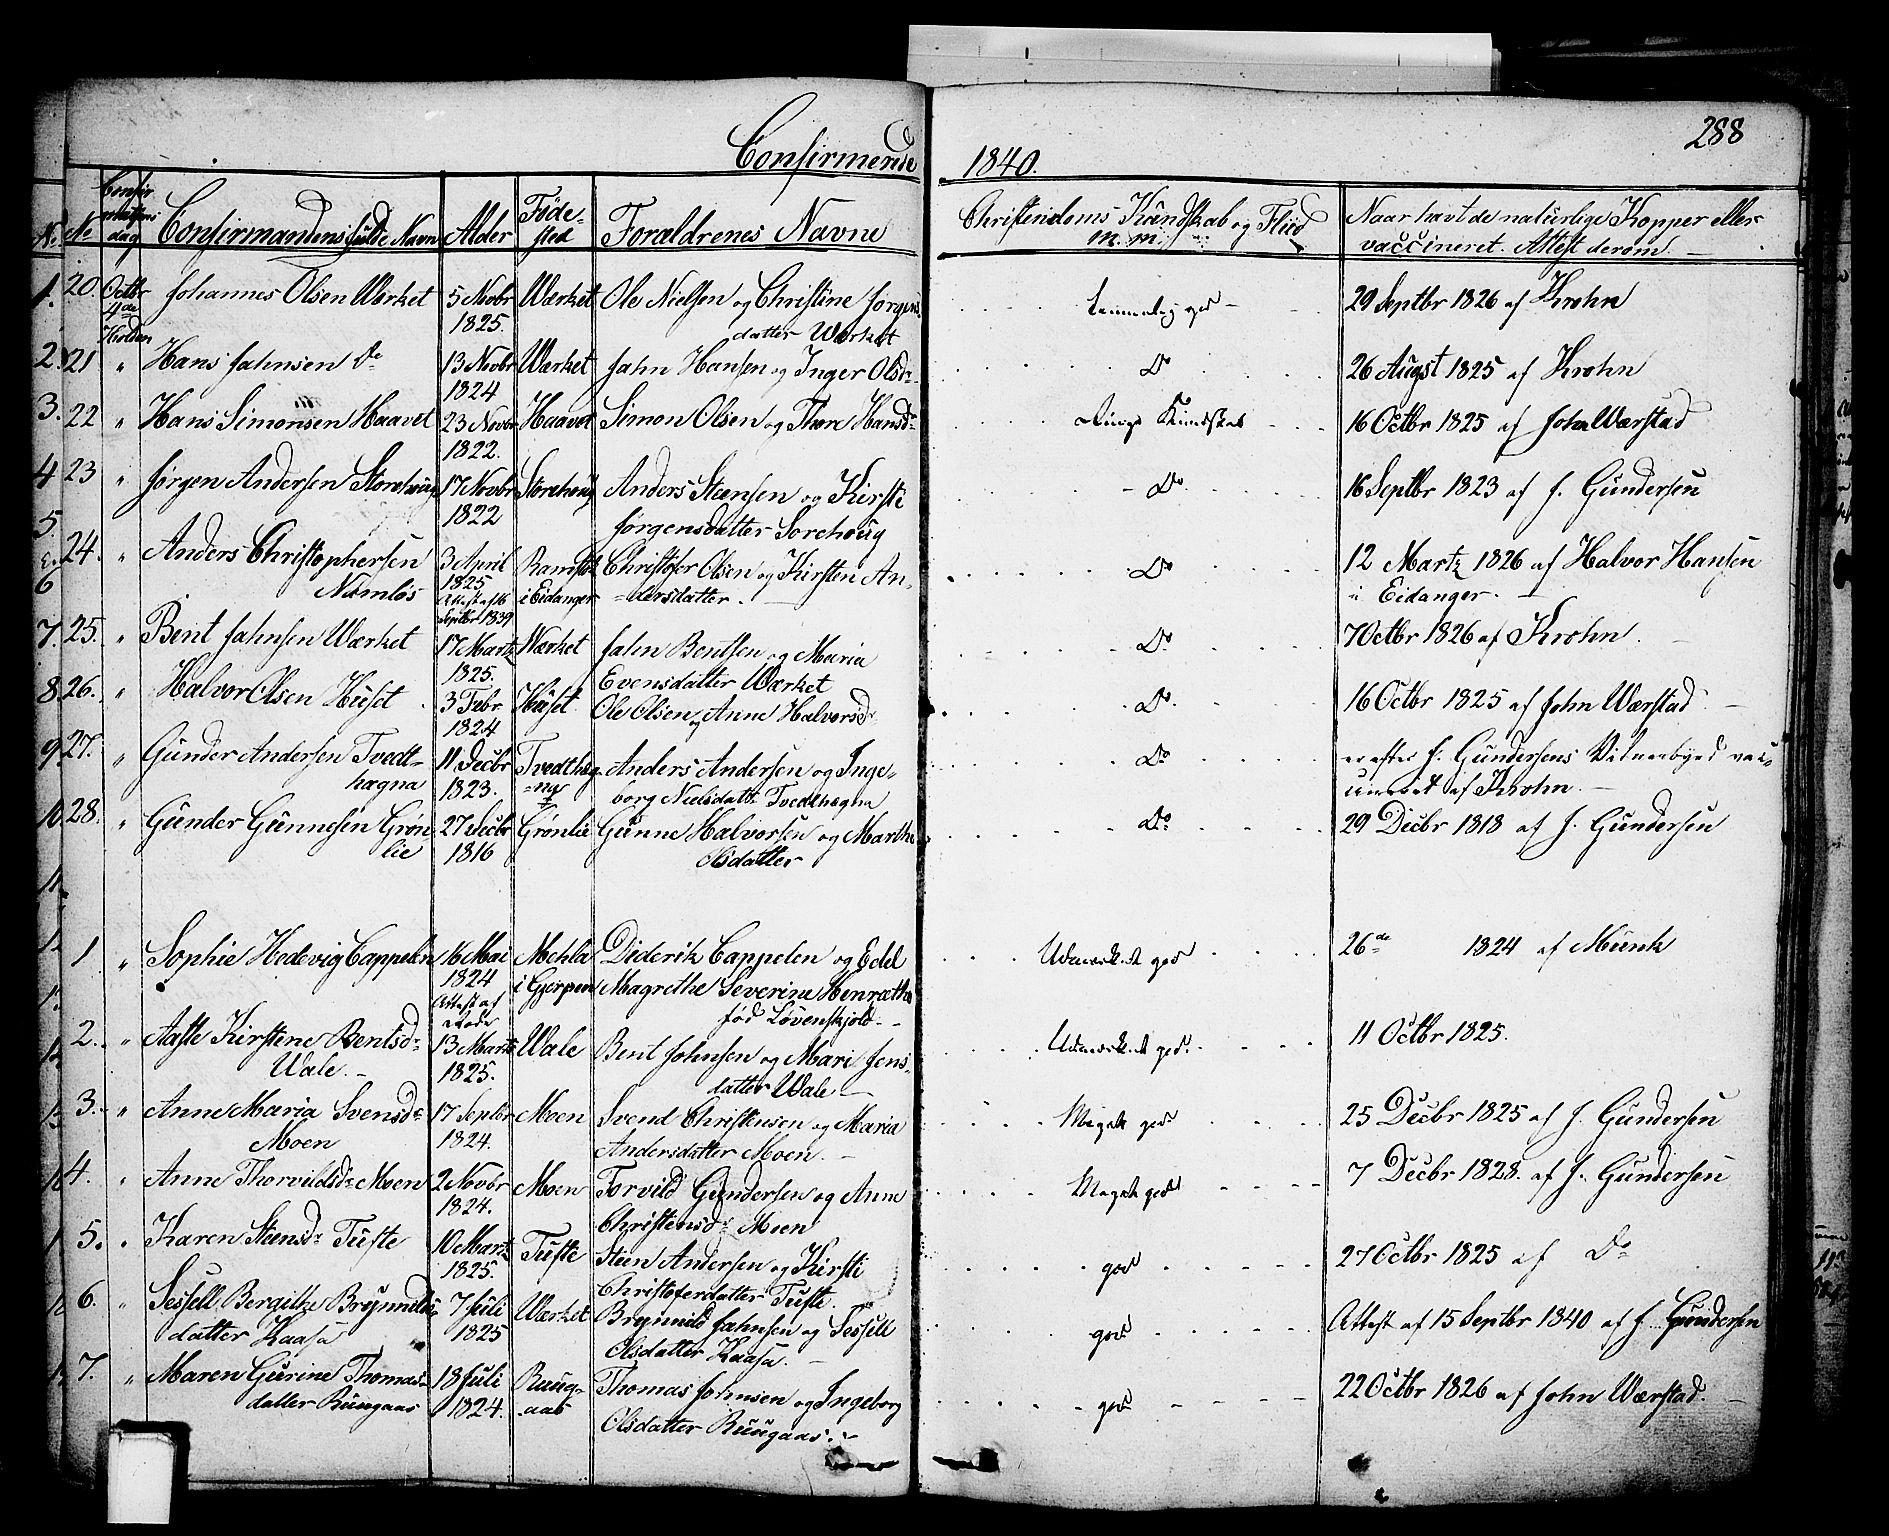 Confirmerede 1840.
288
No.
No
Confirmationsdag
Confirmandens fulde Navn
Alder
Fødested
Forældrenes Navne
Christendoms Kundskab og Fliid m.m.
Naar havt de naturlige Kopper eller vaccineret. Attest derom.
20. Octbr 4de Holden Johannes Olsen Værket 5 Novbr 1825. Værket Ole Nielsen og Christine Jørgensdatter Værket temmelig god 29 Septbr 1826 af Krohn
21 " Hans Jahnsen Do 13 Novbr 1824 Værket Jahn Hansen og Inger Olsdr Do 26 Augst 1825 af Krohn
22 " Hans Simonsen Haavet 23 Novbr 1822. Haavet Simon Olsen og Thore Hansdr Ringe Kundskab 16 Octbr 1825 af John Wærstad
23 " Jørgen Andersen Storehoug 17 Novbr 1822 Storehoug Anders Steensen og Kirsti Jørgensdatter Sorehoug Do 16 Septbr 1823 af J. Gundersen
24. " Anders Christophersen Namløs 3 April 1825 Attest af 16 Septbr 1839 i Eidanger Christofer Olsen og Kirsten Andersdatter. Do 12 Martz 1826 af Halvor Hansen i Eidanger.
25. " Bent Jahnsen Værket 17 Martz 1825. Værket Jahn Bentsen og Maria Evensdatter Værket Do 7 Octbr 1826 af Krohn.
26. " Halvor Olsen Huset 3 Febr 1824 Huset Ole Olsen og Anne Halvorsdr Do 16 Octbr 1825 af John Wærstad
27. " Gunder Andersen Tvedthagna 11 Decbr 1823. Anders Andersen og Ingeborg Nielsdattr Tvedthagna Do er efter J. Gundersens Vidnesbyrd vaccineret af Krohn.
28. " Gunder Gunnesen Grønlie 27 Decbr 1816 Grønlie Gunne Halvorsen og Marthe Olsdatter Do 29 Decbr 1818 af J. Gundersen
1 " Sophie Hedevig Cappelen 16 Mai 1824 Attest af Rode Mehla i Gjerpen Diderik Cappelen og Edel Magrethe Severine Henrætha fød Løvenskjold Udmærket god 26de 1824 af Munk
2. " Aaste Kirstine Bentsdr Vale. 13 Martz 1825. Vale Bent Johnsen og Mari Jensdatter Vale Udmærket god. 11 Octbr 1825.
3. " Anne Maria Svensdr Moen 17 Septbr 1824. Moen Svend Christensen og Maria Andersdatter Moen. Meget god 25 Decbr 1825 af J. Gundersen
4. " Anne Thorvildsdr Moen 2 Novbr 1824. Moen Torvild Gundersen og Anne Christensdr Moen Meget god 7 Decbr 1828. af J. Gundersen
5. " Karen Steensdr Tufte 10 Martz 1825. Tufte Steen Andersen og Kirsti Christofersdatter Tufte. god 27 Octbr 1825 af Do
6. " Sessell Bergithe Brynnildsdatter Kaasa 7 Juli 1825 Værket Brynnild Jahnsen og Sessell Olsdatter Kaasa. god Attest af 15 Septbr 1840 af J. Gundersen
7. " Maren Gurine Thomasdatter Ruugaas 18 Juli 1824. Ruugaas Thomas Johnsen og Ingeborg Olsdatter Ruugaas. god 22 Octbr 1826 af John Wærstad.